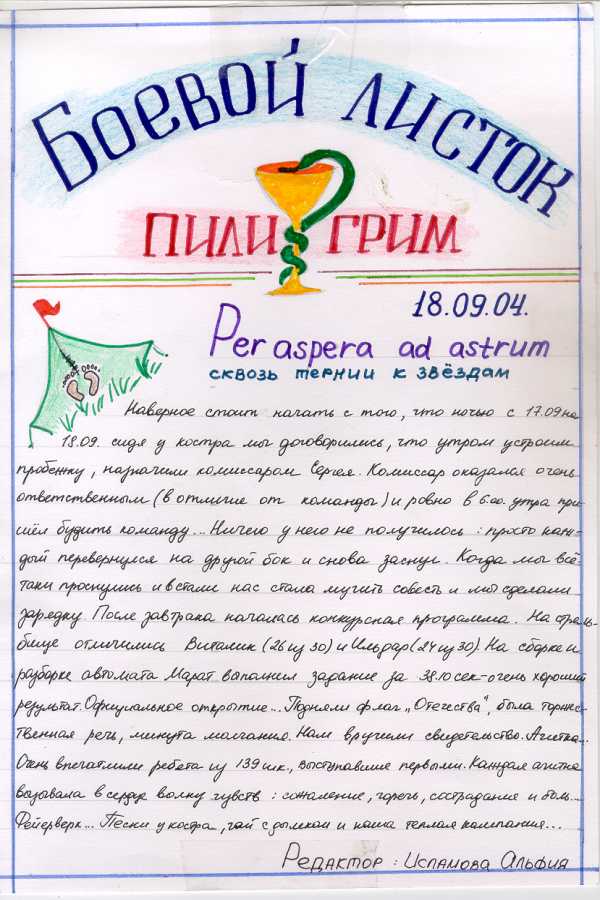 Боевой листок
ПИЛИГРИМ
18.09.04.
Per aspera ad astrum
сквозь тернии к звёздам
Наверное стоит начать с того, что ночью с 17.09 на
18.09. сидя у костра мы договорились, что утром устроим
пробежку, назначили комиссаром Сергея. Комиссар оказался очень
ответственным (в отличие от команды) и ровно в 6.00. утра при-
шёл будить команду... Ничего у него не получилось: просто каж-
дый перевернулся на другой бок и снова заснул. Когда мы всё-
таки проснулись и встали нас стала мучить совесть и мы сделали
зарядку. После завтрака началась конкурсная программа. На стрель-
бище отличились Виталик (26 из 30) и Ильдар (24 из 30) На сборке и
разборке автомата Марат выполнил задание за 38.10 сек-очень хороший
результат. Официальное открытие... Подняли флаг „Отечества", была торжес-
твенная речь, минута молчания. Нам вручили свидетельство. Агитка...
Очень впечатлили ребята из 139 шк., выступавшие первыми. Каждая агитка
вызывала в сердце волну чувств: сожаление, горечь, сострадание и боль...
Фейерверк... Песни у костра, чай с дымком и наша теплая компания...
Редактор: Исламова Альфия